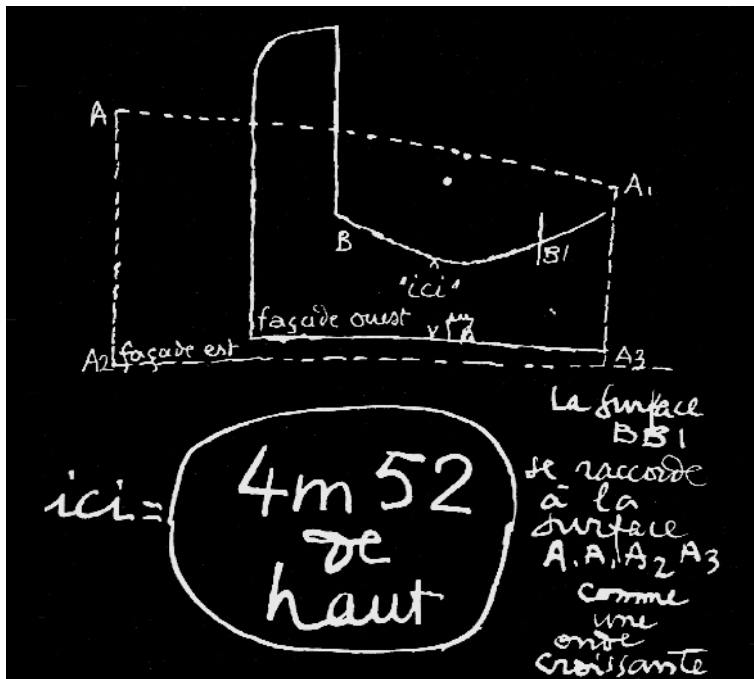 A
A1
B
B1
"ici"
façade ouest
A2 façade est
A3
ici = 4m 52
de
haut
La surface
BB1
se raccorde
à la
surface
A. A1 A2 A3
comme
une
onde
croissante